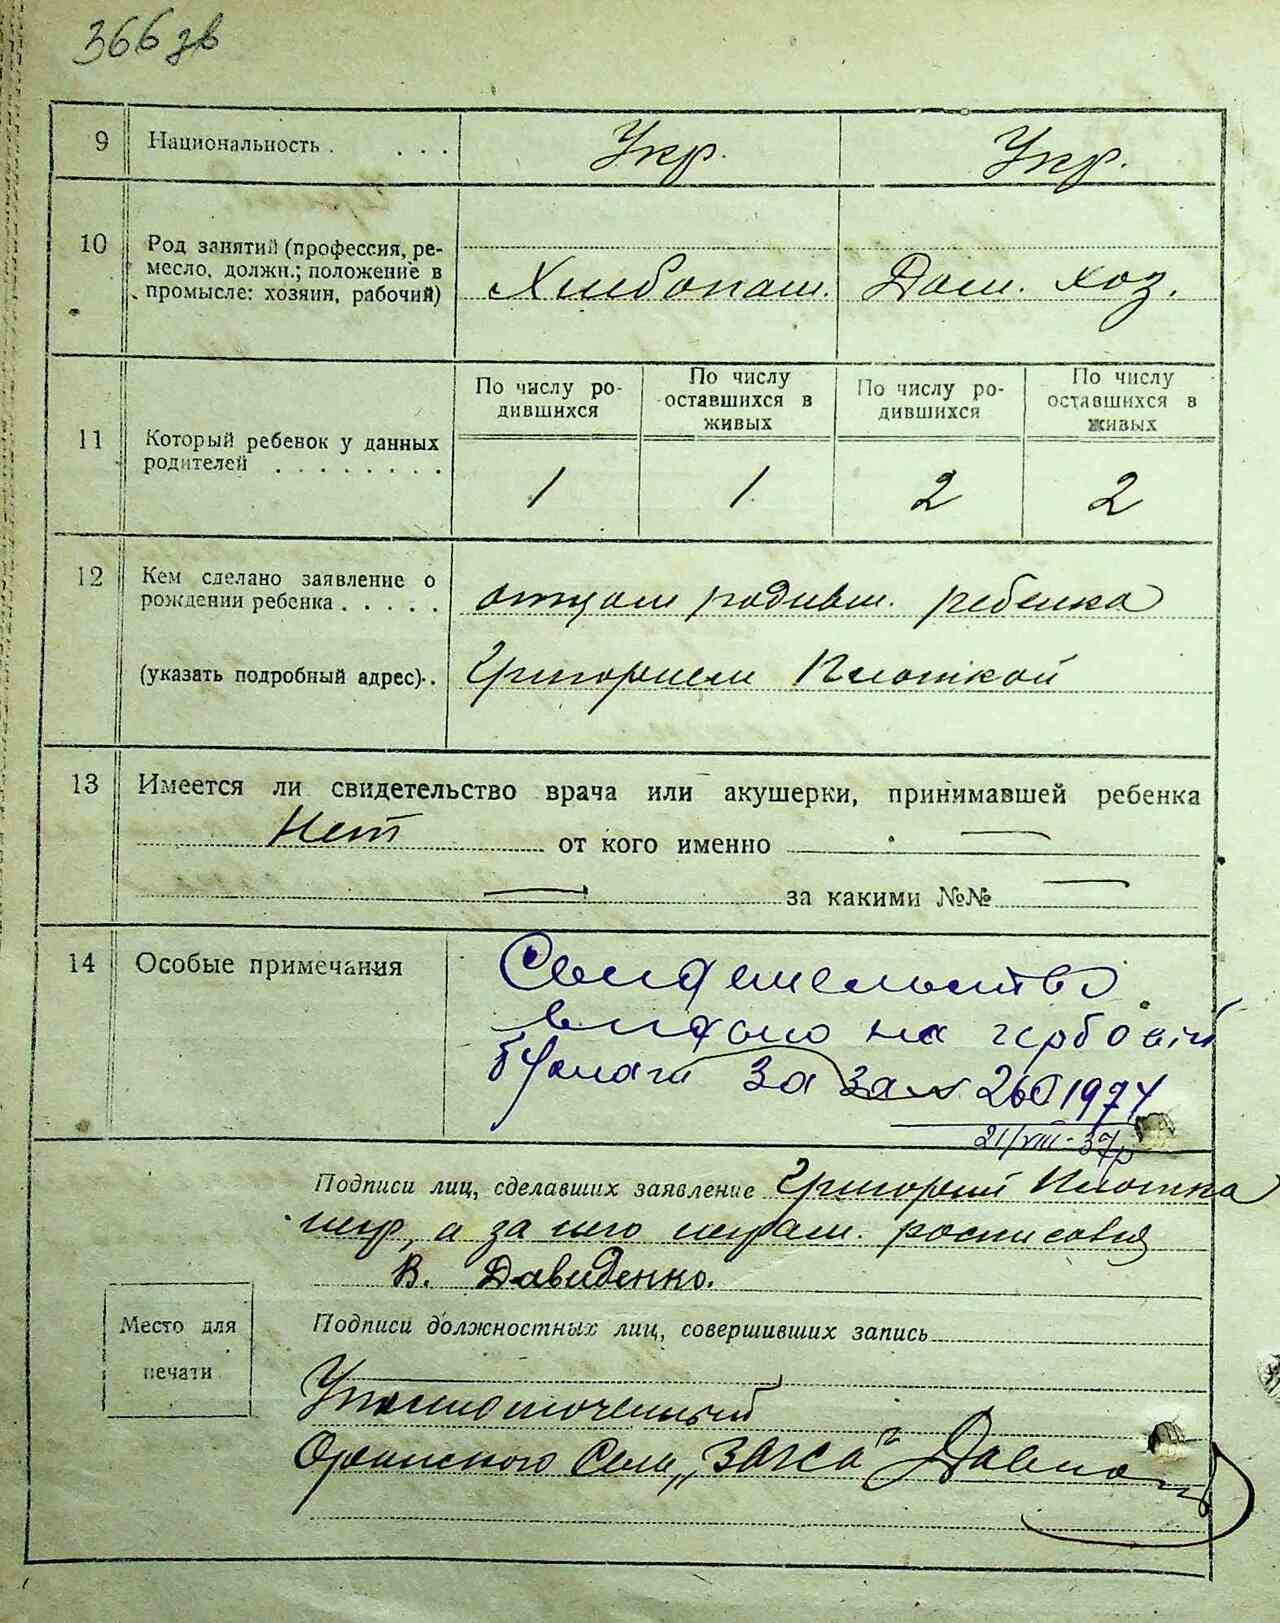 366 зв
9 Национальность . . . . Укр. Укр.
10 Род занятий (профессия, ре-
месло, должн.; положение в
промысле: хозяин, рабочий) Хлебопаш. Дом. хоз.
По числу ро-
дившихся
По числу
оставшихся в
живых
По числу ро-
дившихся
По числу
оставшихся в
живых
11 Который ребенок у данных
родителей . . . . . . . . 1 1 2 2
12 Кем сделано заявление о
рождении ребенка . . . . . отцом родивш. ребенка
(указать подробный адрес) . . Григорием Плоткой
13 Имеется ли свидетельство врача или акушерки, принимавшей ребенка
Нет от кого именно —
— за какими №№ —
14 Особые примечания Свидетельство
видано на гербовій
бумаги за 1974
21/VIII-37р
Подписи лиц, сделавших заявление Григорий Плотка
негр, а за него неграм. росписався
В. Давиденко.
Место для
печати
Подписи должностных лиц, совершивших запись
Уполномоченный
Сель „ЗАГСА"